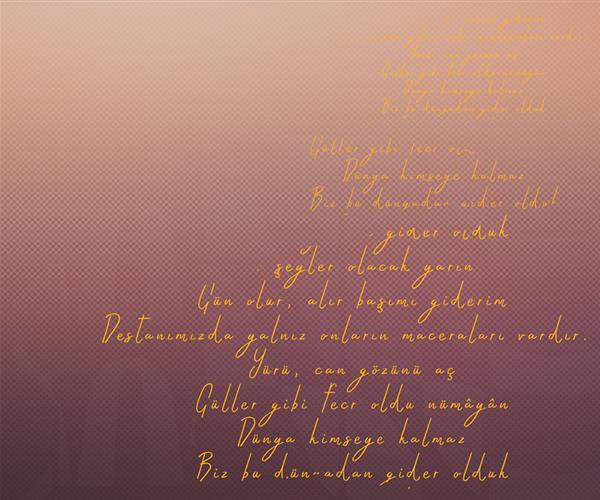 Güller gibi fecr
Dünya kimseye kalmaz
Biz bu dünyadan gider olduk
Güller gibi fecr
Dünya kimseye kalmaz
Biz bu dünyadan gider olduk
gider olduk
şeyler olacak yarın
Gün olur, alır başımı giderim
Destanımızda yalnız onların maceraları vardır.
Yürü, can gözünü aç
Güller gibi fecr oldu nümâyân
Dünya kimseye kalmaz
Biz bu dünyadan gider olduk